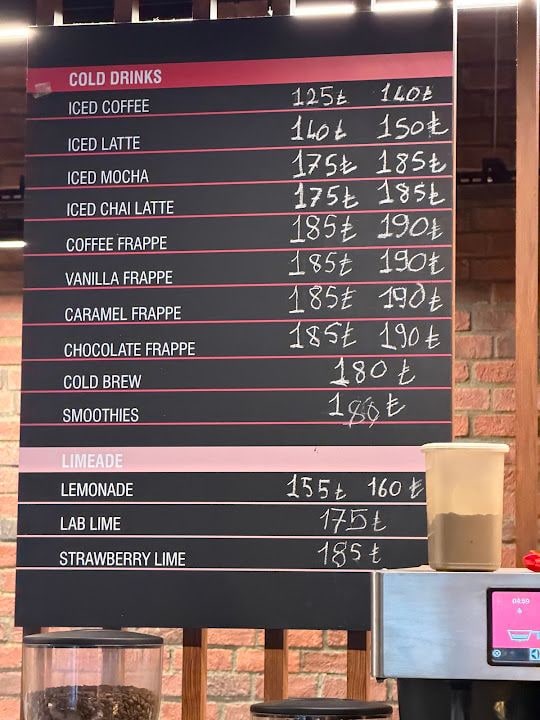 COLD DRINKS
ICED COFFEE 125₺ 140₺
ICED LATTE 140₺ 150₺
ICED MOCHA 175₺ 185₺
ICED CHAI LATTE 175₺ 185₺
COFFEE FRAPPE 185₺ 190₺
VANILLA FRAPPE 185₺ 190₺
CARAMEL FRAPPE 185₺ 190₺
CHOCOLATE FRAPPE 185₺ 190₺
COLD BREW 180₺
SMOOTHIES 180₺
LIMEADE
LEMONADE 155₺ 160₺
LAB LIME 175₺
STRAWBERRY LIME 185₺
04:59